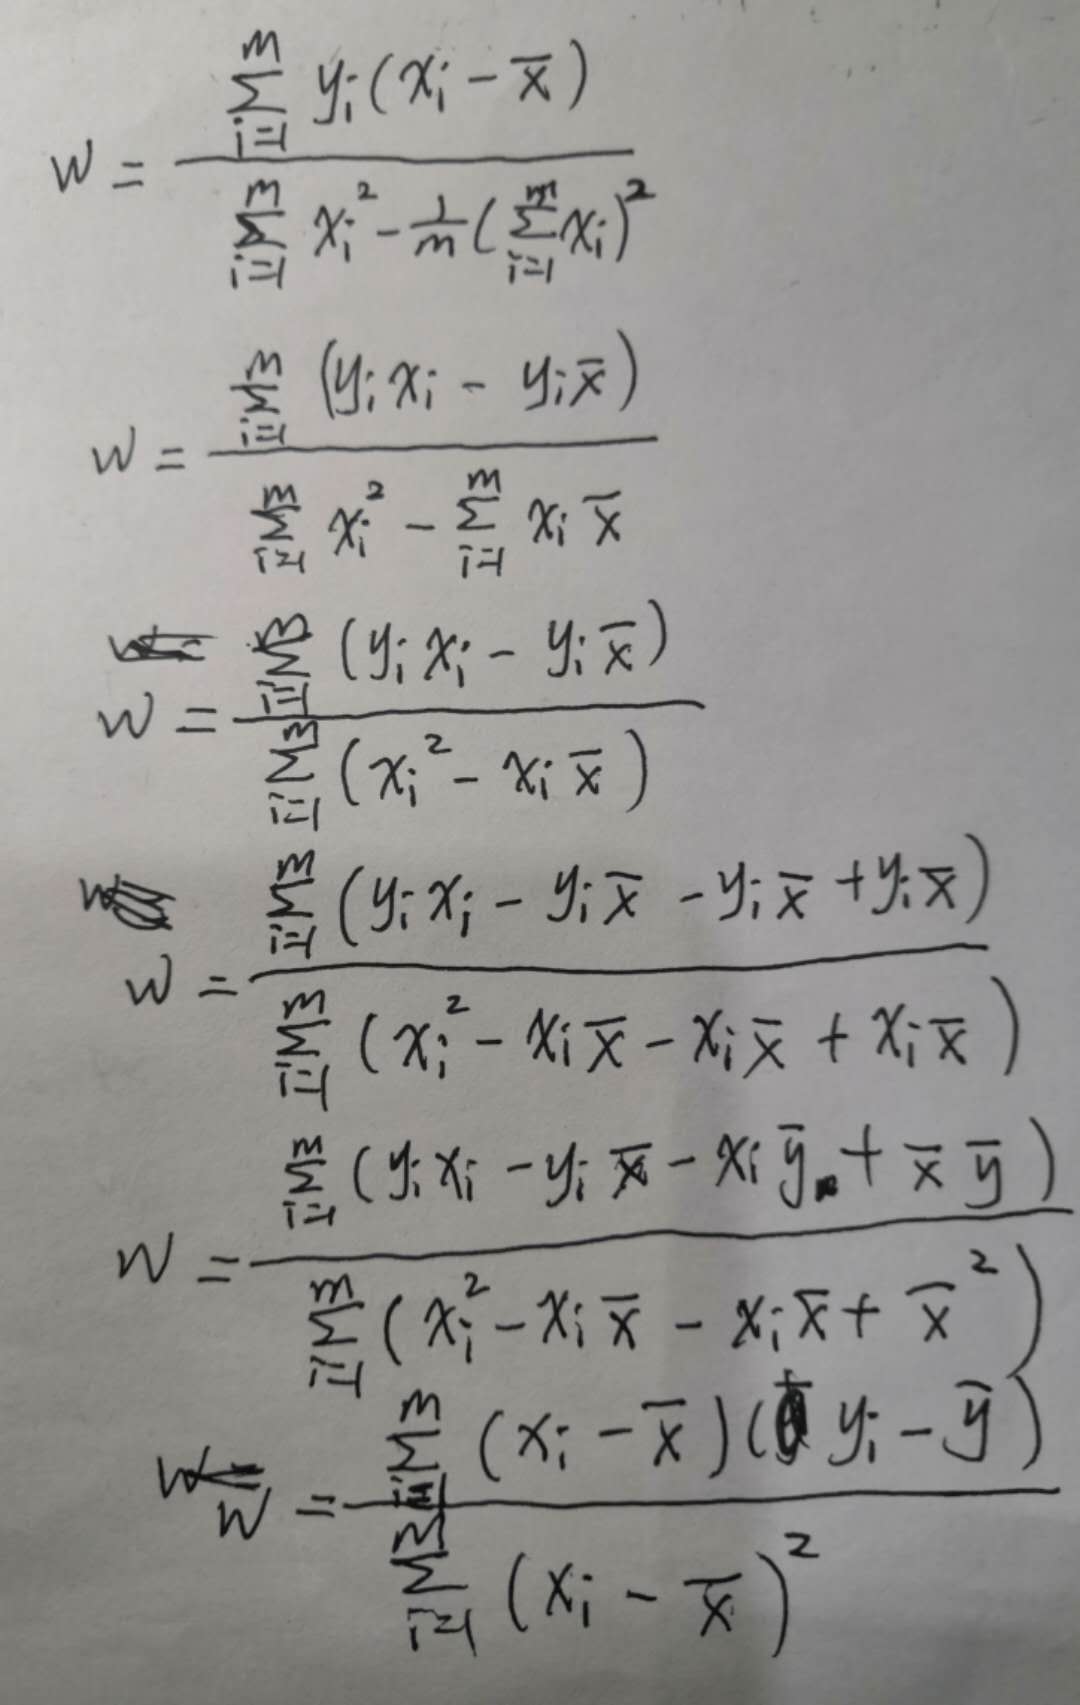 w = \frac{\sum_{i=1}^{m} y_i (x_i - \bar{x})}{\sum_{i=1}^{m} x_i^2 - \frac{1}{m} (\sum_{i=1}^{m} x_i)^2}
w = \frac{\sum_{i=1}^{m} (y_i x_i - y_i \bar{x})}{\sum_{i=1}^{m} x_i^2 - \sum_{i=1}^{m} x_i \bar{x}}
w = \frac{\sum_{i=1}^{m} (y_i x_i - y_i \bar{x})}{\sum_{i=1}^{m} (x_i^2 - x_i \bar{x})}
w = \frac{\sum_{i=1}^{m} (y_i x_i - y_i \bar{x} - y_i \bar{x} + y_i \bar{x})}{\sum_{i=1}^{m} (x_i^2 - x_i \bar{x} - x_i \bar{x} + x_i \bar{x})}
w = \frac{\sum_{i=1}^{m} (y_i x_i - y_i \bar{x} - x_i \bar{y} + \bar{x} \bar{y})}{\sum_{i=1}^{m} (x_i^2 - x_i \bar{x} - x_i \bar{x} + \bar{x}^2)}
w = \frac{\sum_{i=1}^{m} (x_i - \bar{x})(y_i - \bar{y})}{\sum_{i=1}^{m} (x_i - \bar{x})^2}